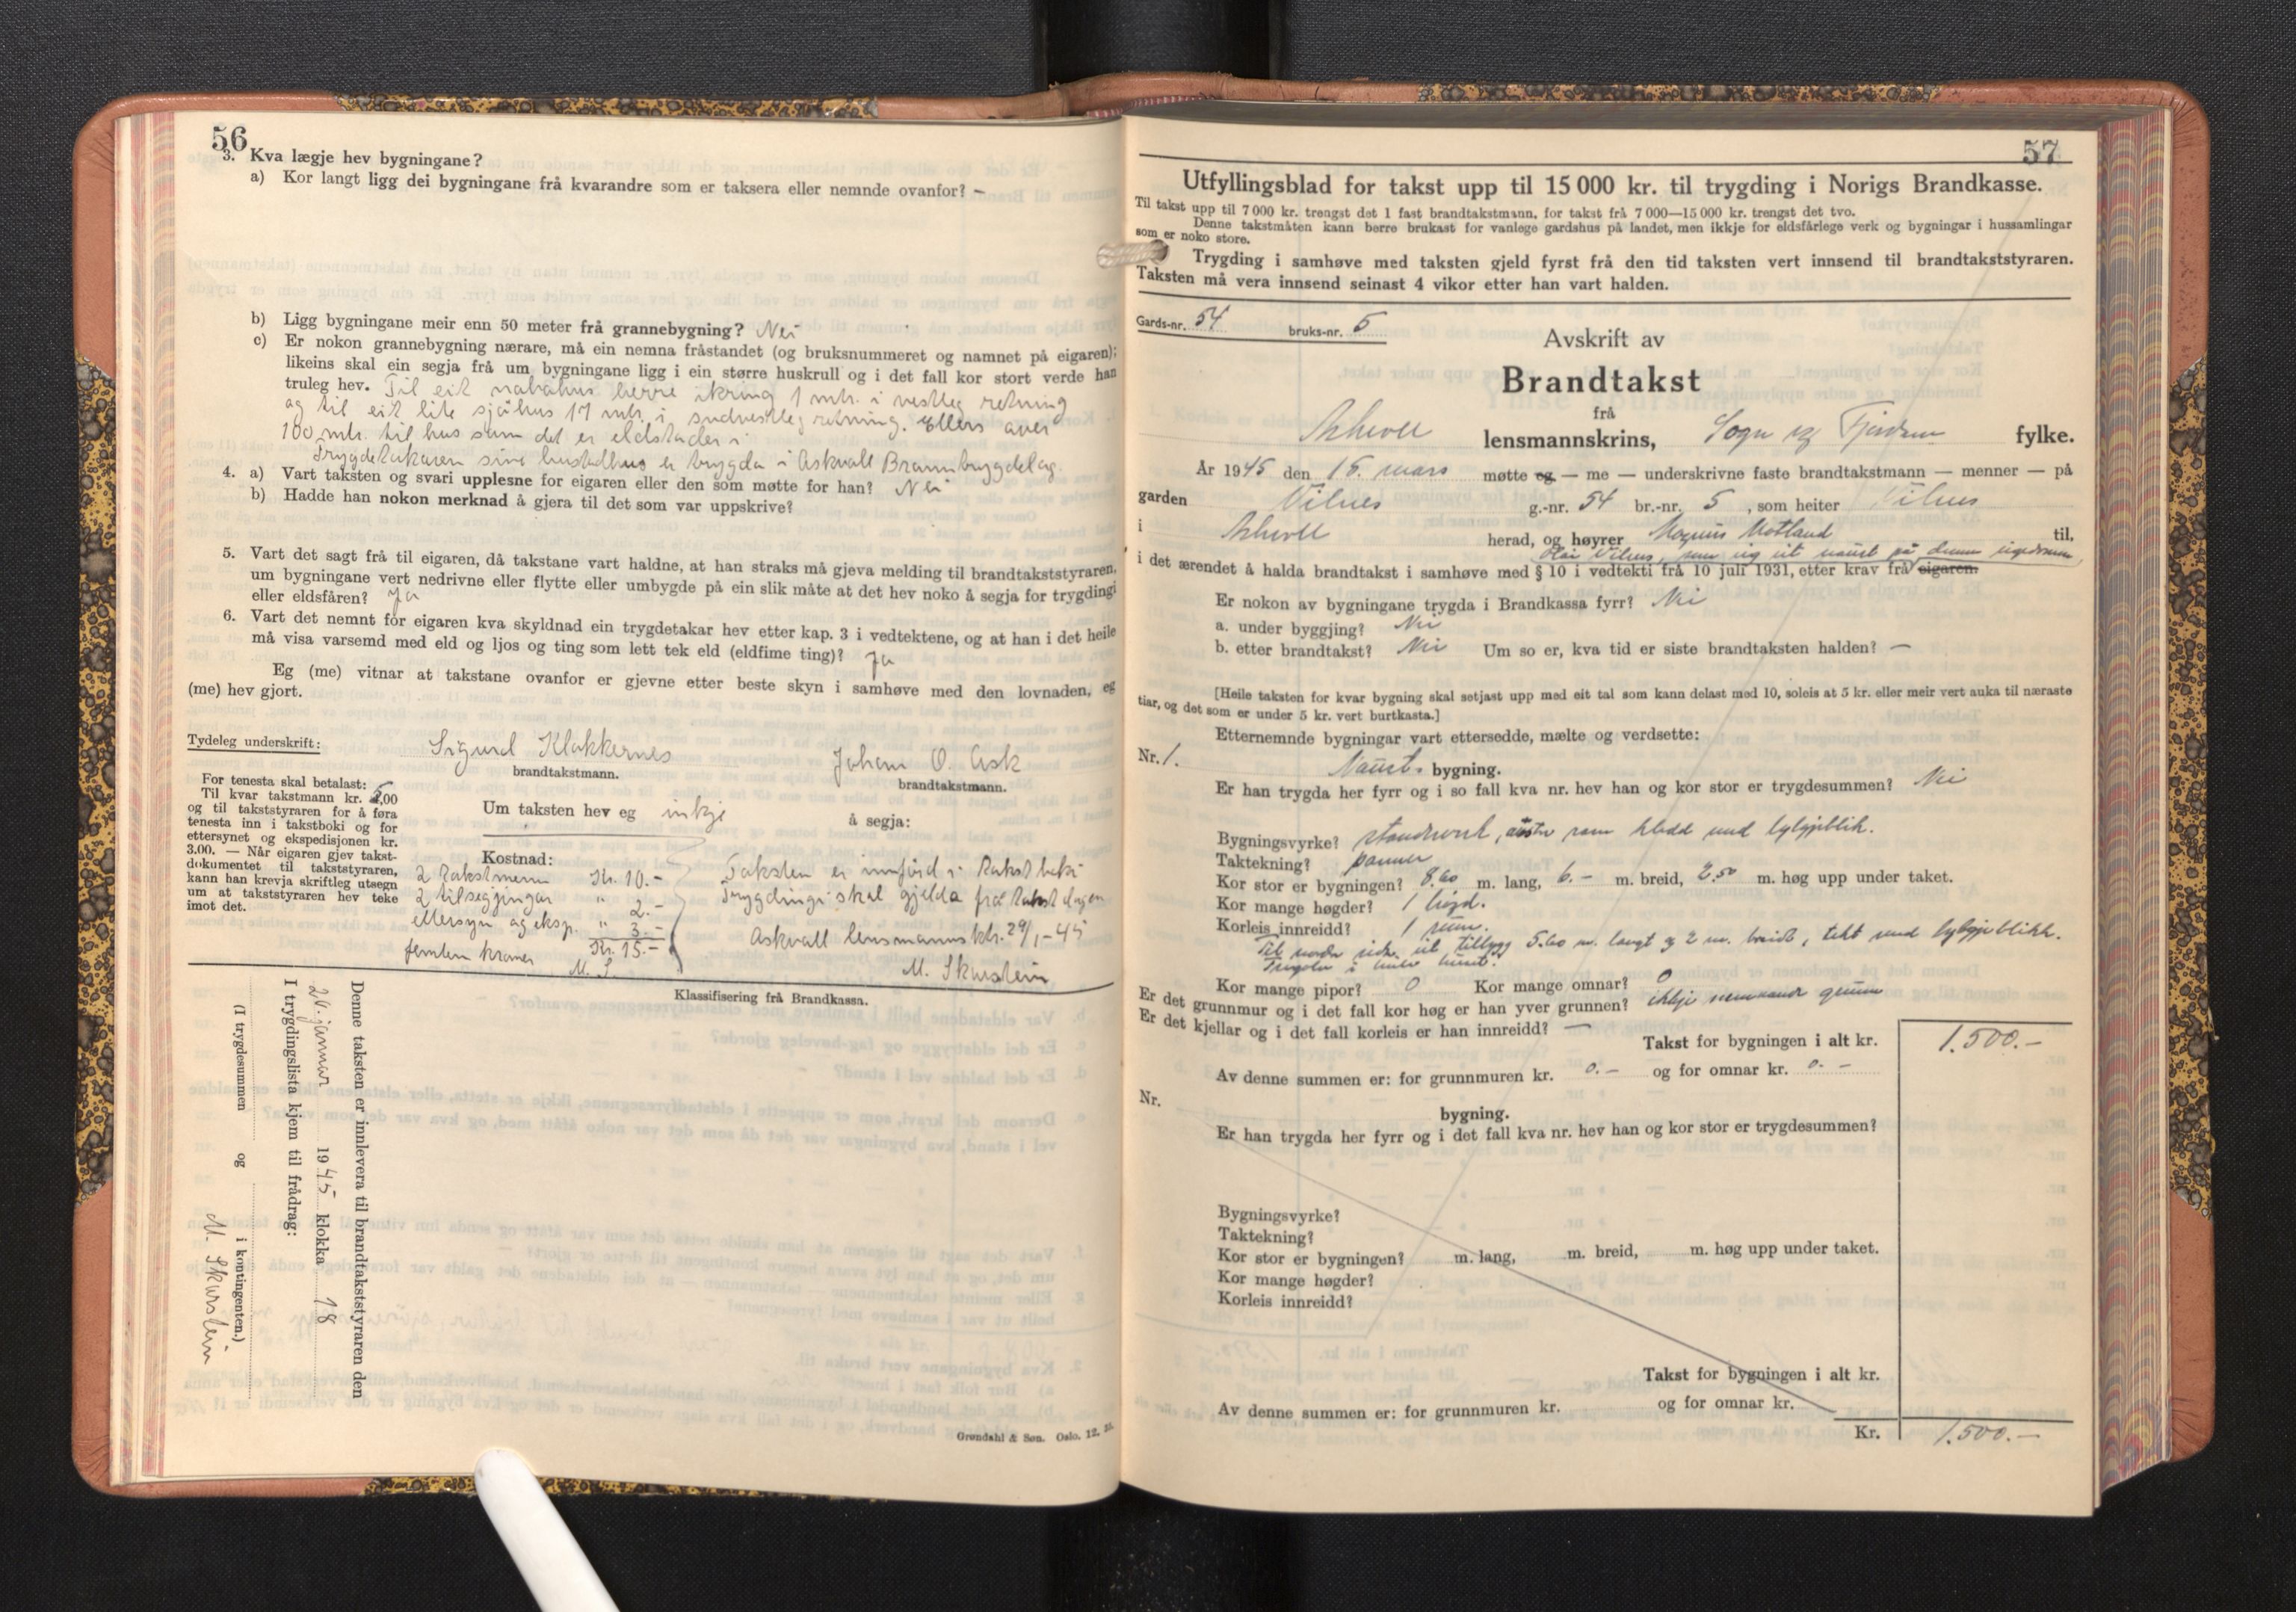 56
3. Kva lægje hev bygningane?
a) Kor langt ligg dei bygningane frå kvarandre som er taksera eller nemnde ovanfor? —
b) Ligg bygningane meir enn 50 meter frå grannebygning? Nei
c) Er nokon grannebygning nærare, må ein nemna fråstandet (og bruksnummeret og namnet på eigaren);
likeins skal ein segja frå um bygningane ligg i ein større huskrull og i det fall kor stort verde han
truleg hev. Til eit nabohus berre ikring 1 mtr. i vestleg retning
og til eit lite sjøhus 17 mtr. i sudvestleg retning. Ellers over
100 mtr. til hus som det er eldstader i
Trygdetakaren sine bustadhus er trygda i Askvoll Branntrygdelag.
4. a) Vart taksten og svari upplesne for eigaren eller den som møtte for han? Nei
b) Hadde han nokon merknad å gjera til det som var uppskrive?
5. Vart det sagt frå til eigaren, då takstane vart haldne, at han straks må gjeva melding til brandtakststyraren,
um bygningane vert nedrivne eller flytte eller umbygde på ein slik måte at det hev noko å segja for trygdingi
eller eldsfåren? Ja
6. Vart det nemnt for eigaren kva skyldnad ein trygdetakar hev etter kap. 3 i vedtektene, og at han i det heile
må visa varsemd med eld og ljos og ting som lett tek eld (eldfime ting)? Ja
Eg (me) vitnar at takstane ovanfor er gjevne etter beste skyn i samhøve med den lovnaden, eg
(me) hev gjort.
Tydeleg underskrift: Sigurd Klakkernes Johan O. Ask
brandtakstmann. brandtakstmann.
For tenesta skal betalast:
Til kvar takstmann kr. 5,00
og til takststyraren for å føra
tenesta inn i takstboki og for
ettersynet og ekspedisjonen kr.
3.00. — Når eigaren gjev takst-
dokumentet til takststyraren,
kann han krevja skriftleg utsegn
um at takststyraren hev teke
imot det.
Um taksten hev eg inkje å segja:
Kostnad:
2 takstmenn Kr. 10.-
2 tilseggjingar " 2.-
ettersyn og eksp. " 3.-
femten kroner Kr. 15.-
M. S.
Taksten er innførd i takstboki
Trygdingi skal gjelda frå takstdagen
Askvoll lensmannsktr. 29/1-45
M. Skarstein
Klassifisering frå Brandkassa.
Denne taksten er innlevera til brandtakststyraren den
26. januar 1945 klokka 18
I trygdingslista kjem til frådrag:
(I trygdesummen og i kontingenten.)
M. Skarstein
Grøndahl & Søn. Oslo. 12.
57
Utfyllingsblad for takst upp til 15 000 kr. til trygding i Norigs Brandkasse.
Til takst upp til 7 000 kr. trengst det 1 fast brandtakstmann, for takst frå 7 000—15 000 kr. trengst det tvo.
Denne takstmåten kann berre brukast for vanlege gardshus på landet, men ikkje for eldsfårlege verk og bygningar i hussamlingar
som er noko store.
Trygding i samhøve med taksten gjeld fyrst frå den tid taksten vert innsend til brandtakststyraren.
Taksten må vera innsend seinast 4 vikor etter han vart halden.
Gards-nr. 54 bruks-nr. 5
Avskrift av
Brandtakst
frå
Askvoll lensmannskrins, Sogn og Fjordane fylke.
År 1945 den 15. mars møtte eg — me — underskrivne faste brandtakstmann — menner — på
garden Vilnes g.-nr. 54 br.-nr. 5, som heiter Vilnes
i Askvoll herad, og høyrer Magnus Motland til,
Olai Vilnes, som eig eit naust på denne eigedomen
i det ærendet å halda brandtakst i samhøve med § 10 i vedtekti frå 10 juli 1931, etter krav frå eigaren.
Er nokon av bygningane trygda i Brandkassa fyrr? Nei
a. under byggjing? Nei
b. etter brandtakst? Nei Um so er, kva tid er siste brandtaksten halden? —
[Heile taksten for kvar bygning skal setjast upp med eit tal som kann delast med 10, soleis at 5 kr. eller meir vert auka til næraste
tiar, og det som er under 5 kr. vert burtkasta.]
Etternemnde bygningar vart ettersedde, mælte og verdsette:
Nr. 1. Naust- bygning.
Er han trygda her fyrr og i so fall kva nr. hev han og kor stor er trygdesummen? Nei
Bygningsvyrke? standverk, som kledd med bylgjeblik.
Taktekning? panner
Kor stor er bygningen? 8.60 m. lang, 6.- m. breid, 2.50 m. høg upp under taket.
Kor mange høgder? 1 høgd.
Korleis innreidd? 1 rum.
På nordre side eit tilbygg 5.60 m. langt og 2 m. breidt, tekt med bylgjeblikk.
Kor mange pipor? 0 Kor mange omnar? 0
Er det grunnmur og i det fall kor høg er han yver grunnen? ikkje nemnande grunn
Er det kjellar og i det fall korleis er han innreidd? —
Takst for bygningen i alt kr. 1.500.-
Av denne summen er: for grunnmuren kr. 0.- og for omnar kr. 0.-
Nr. bygning.
Er han trygda her fyrr og i det fall kva nr. hev han og kor stor er trygdesummen?
Bygningsvyrke?
Taktekning?
Kor stor er bygningen? m. lang, m. breid, m. høg upp under taket.
Kor mange høgder?
Korleis innreidd?
Takst for bygningen i alt kr.
Av denne summen er: for grunnmuren kr. og for omnar kr.
Kr. 1.500.-